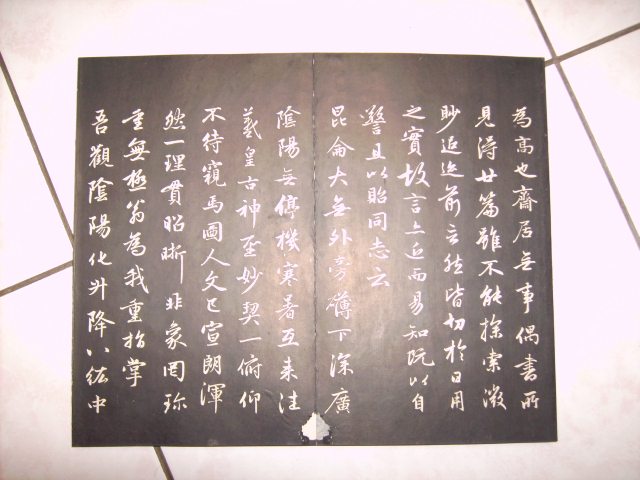 為高也齋居無事偶書所
見得廿篇雖不能探索微
眇追迹前言然皆切於日用
之實故言亦近而易知既以自
警且以貽同志云
昆侖大無外旁礴下深廣
陰陽無停機寒暑互來往
羲皇古神聖妙契一俯仰
不待窺馬圖人文已宣朗渾
然一理貫昭晰非象罔珍
重無極翁為我重指掌
吾觀陰陽化升降八紘中